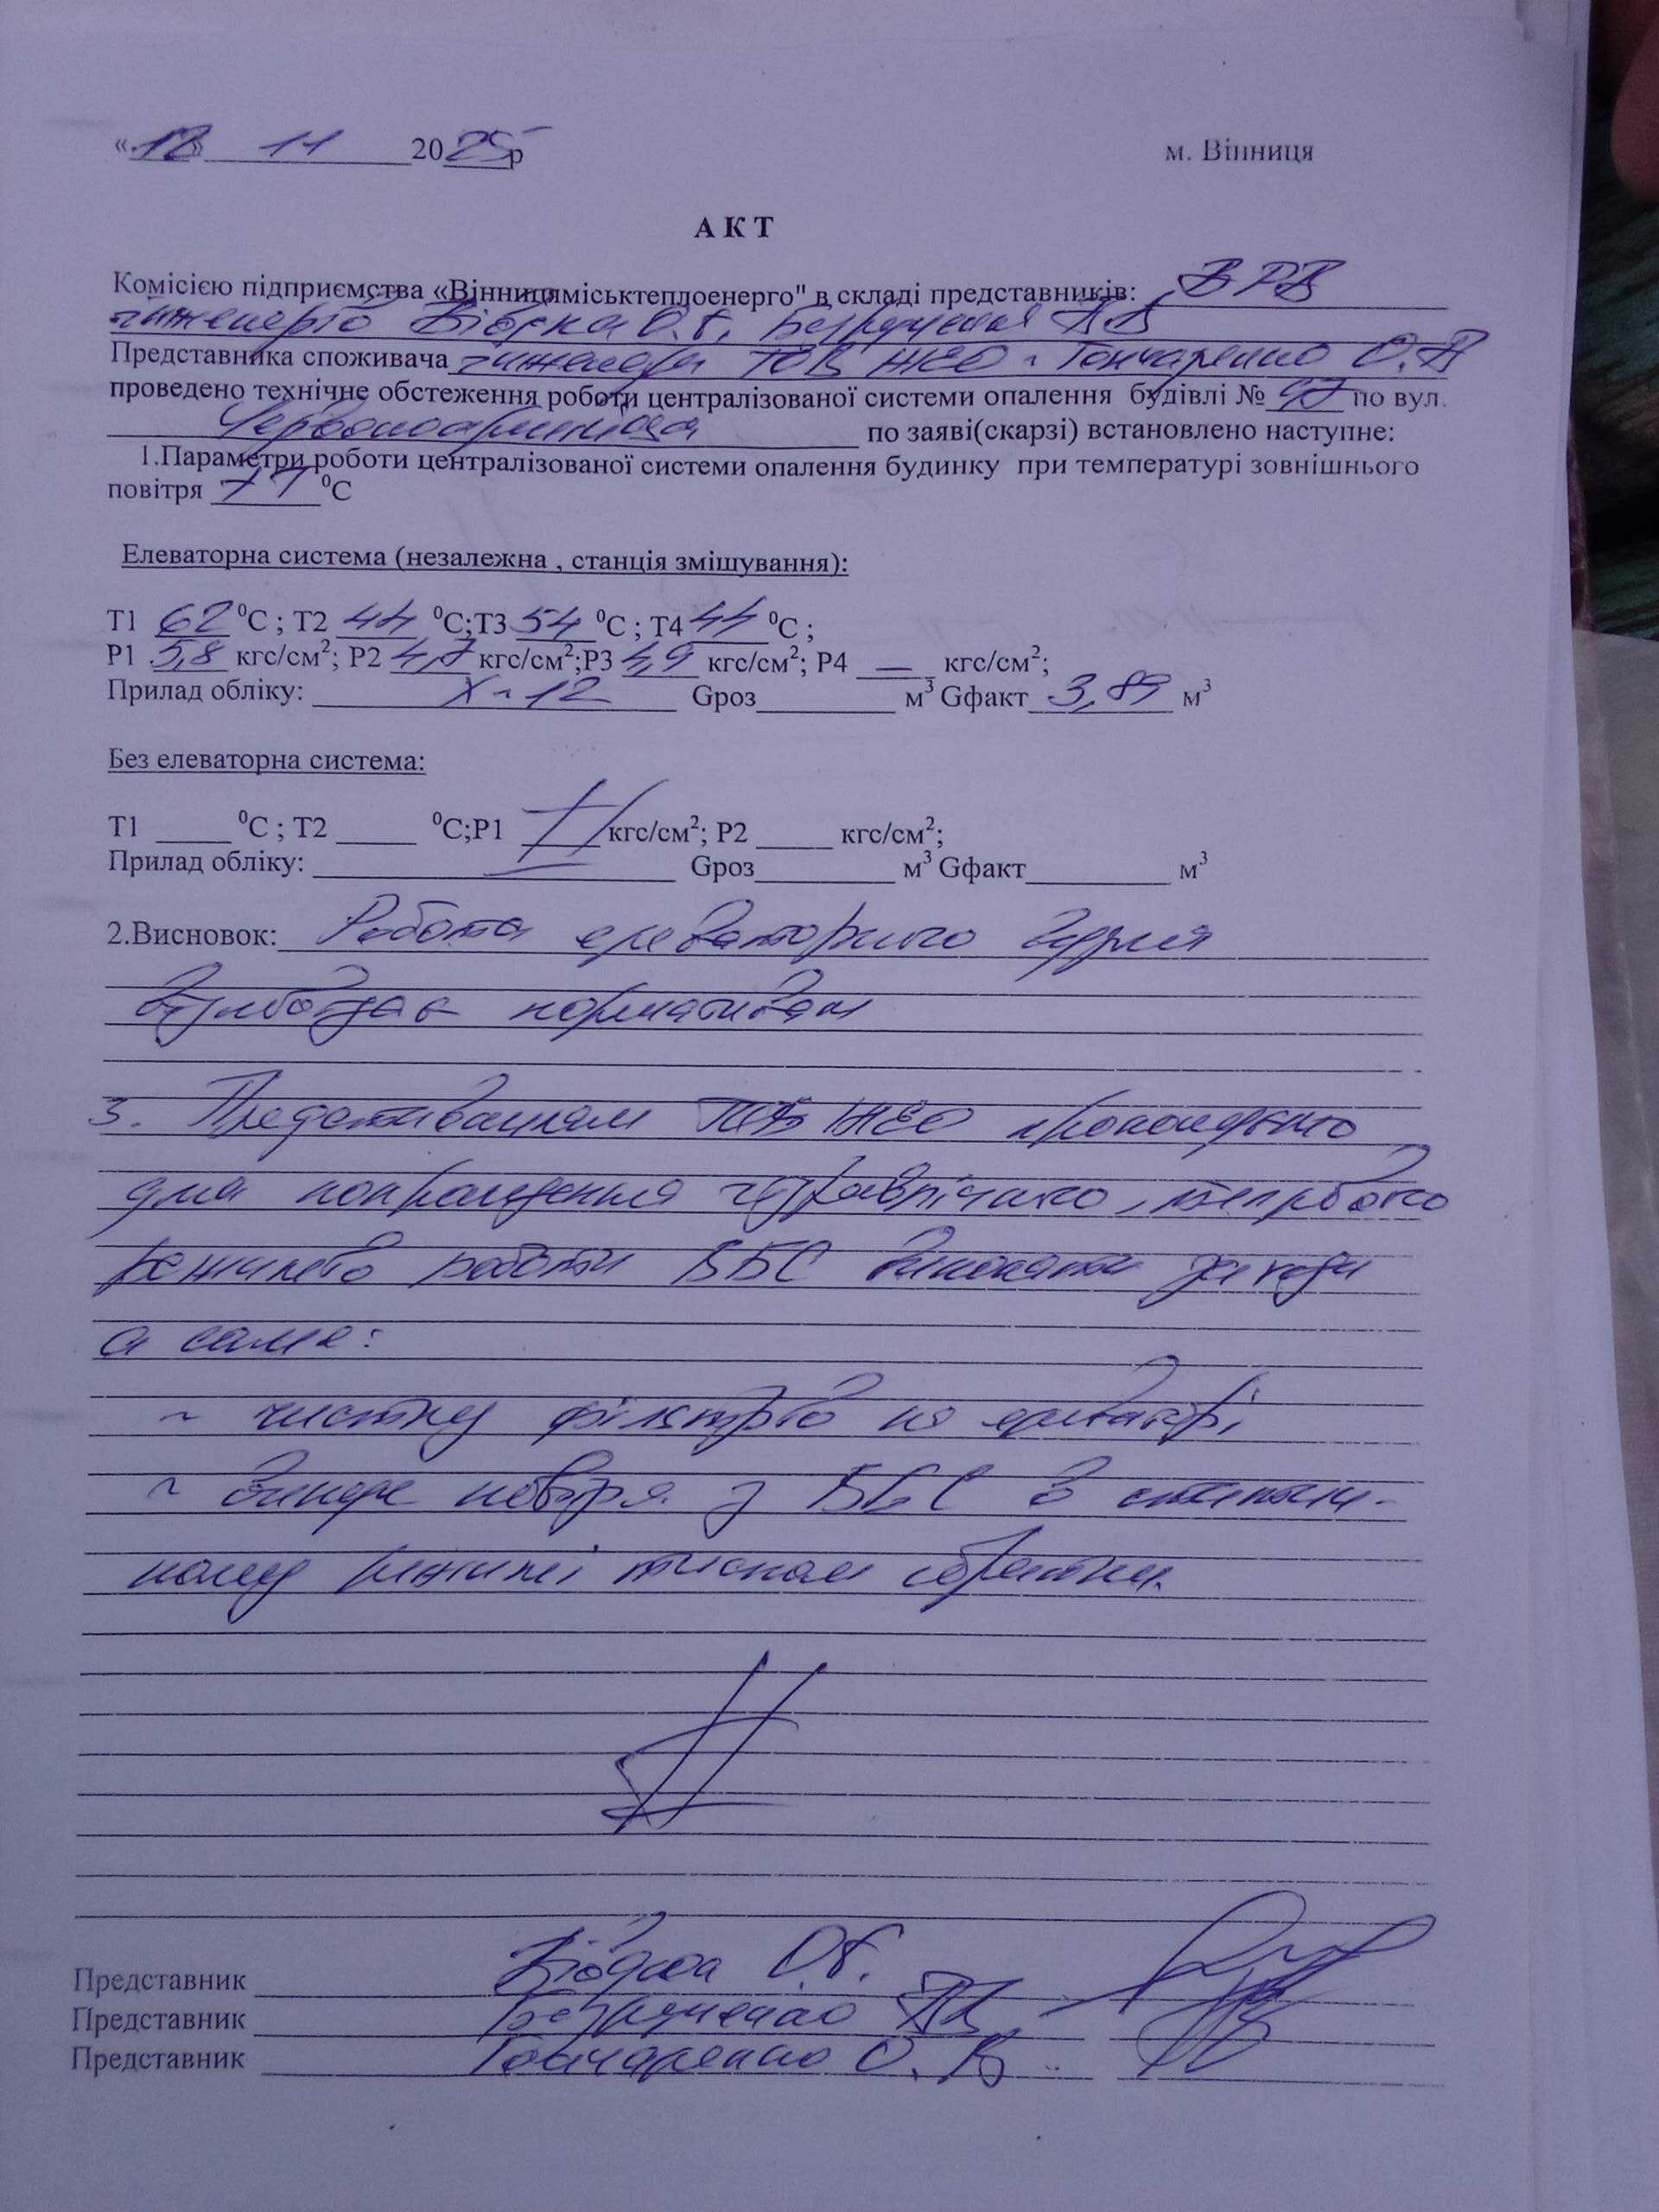 «12» 11 2025р м. Вінниця
АКТ
Комісією підприємства «Вінницяміськтеплоенерго" в складі представників: ВРВ
інженерів О.Г. Безрученко
Представника споживача інженера ТОВ ЖЕО - Гончаренко О.В
проведено технічне обстеження роботи централізованої системи опалення будівлі № 47 по вул.
Червоноармійська по заяві(скарзі) встановлено наступне:
1.Параметри роботи централізованої системи опалення будинку при температурі зовнішнього
повітря °С
Елеваторна система (незалежна , станція змішування):
Т1 62 °С ; Т2 44 °С;Т3 54 °С ; Т4 44 °С ;
Р1 5,8 кгс/см²; Р2 4,7 кгс/см²;Р3 4,9 кгс/см²; Р4 — кгс/см²;
Прилад обліку: X-12 Gроз м³ Gфакт 3,89 м³
Без елеваторна система:
Т1 °С ; Т2 °С;Р1 кгс/см²; Р2 кгс/см²;
Прилад обліку: Gроз м³ Gфакт м³
2.Висновок: Робота елеваторного вузла
відповідає нормативам
3. Представникам ТОВ ЖЕО пропонуємо
для покращення гідравлічного, теплового
режимів роботи ВБС виконати заходи
а саме:
~ чистку фільтрів на елеваторі
~ повітря з ВБС в статич-
ному режимі тиском обратки.
Представник О.Г.
Представник Безрученко
Представник Гончаренко О.В